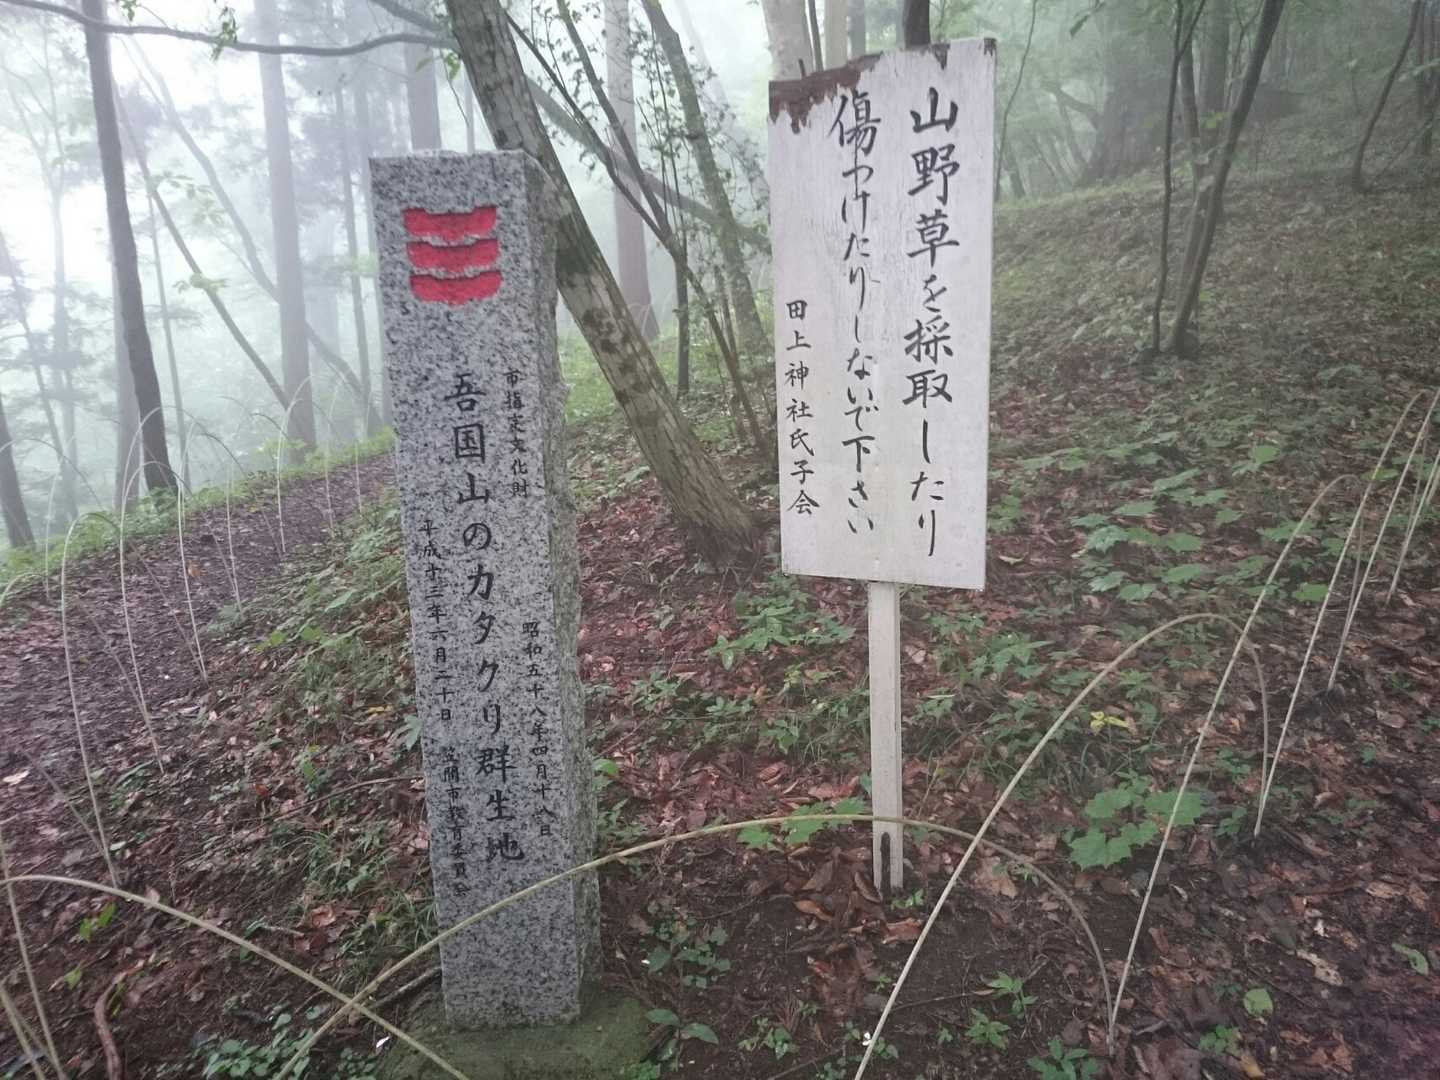 市指定文化財
昭和五十八年四月十八日
吾国山のカタクリ群生地
平成十三年六月二十日
笠間市教育委員会
山野草を採取したり
傷つけたりしないで下さい
田上神社氏子会